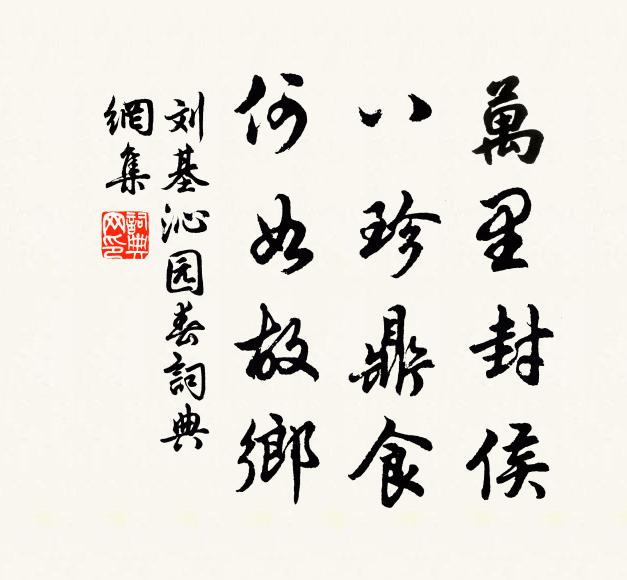 萬里封侯
八珍鼎食
何如故鄉
刘基沁园春詞典
網集
詞典
网印